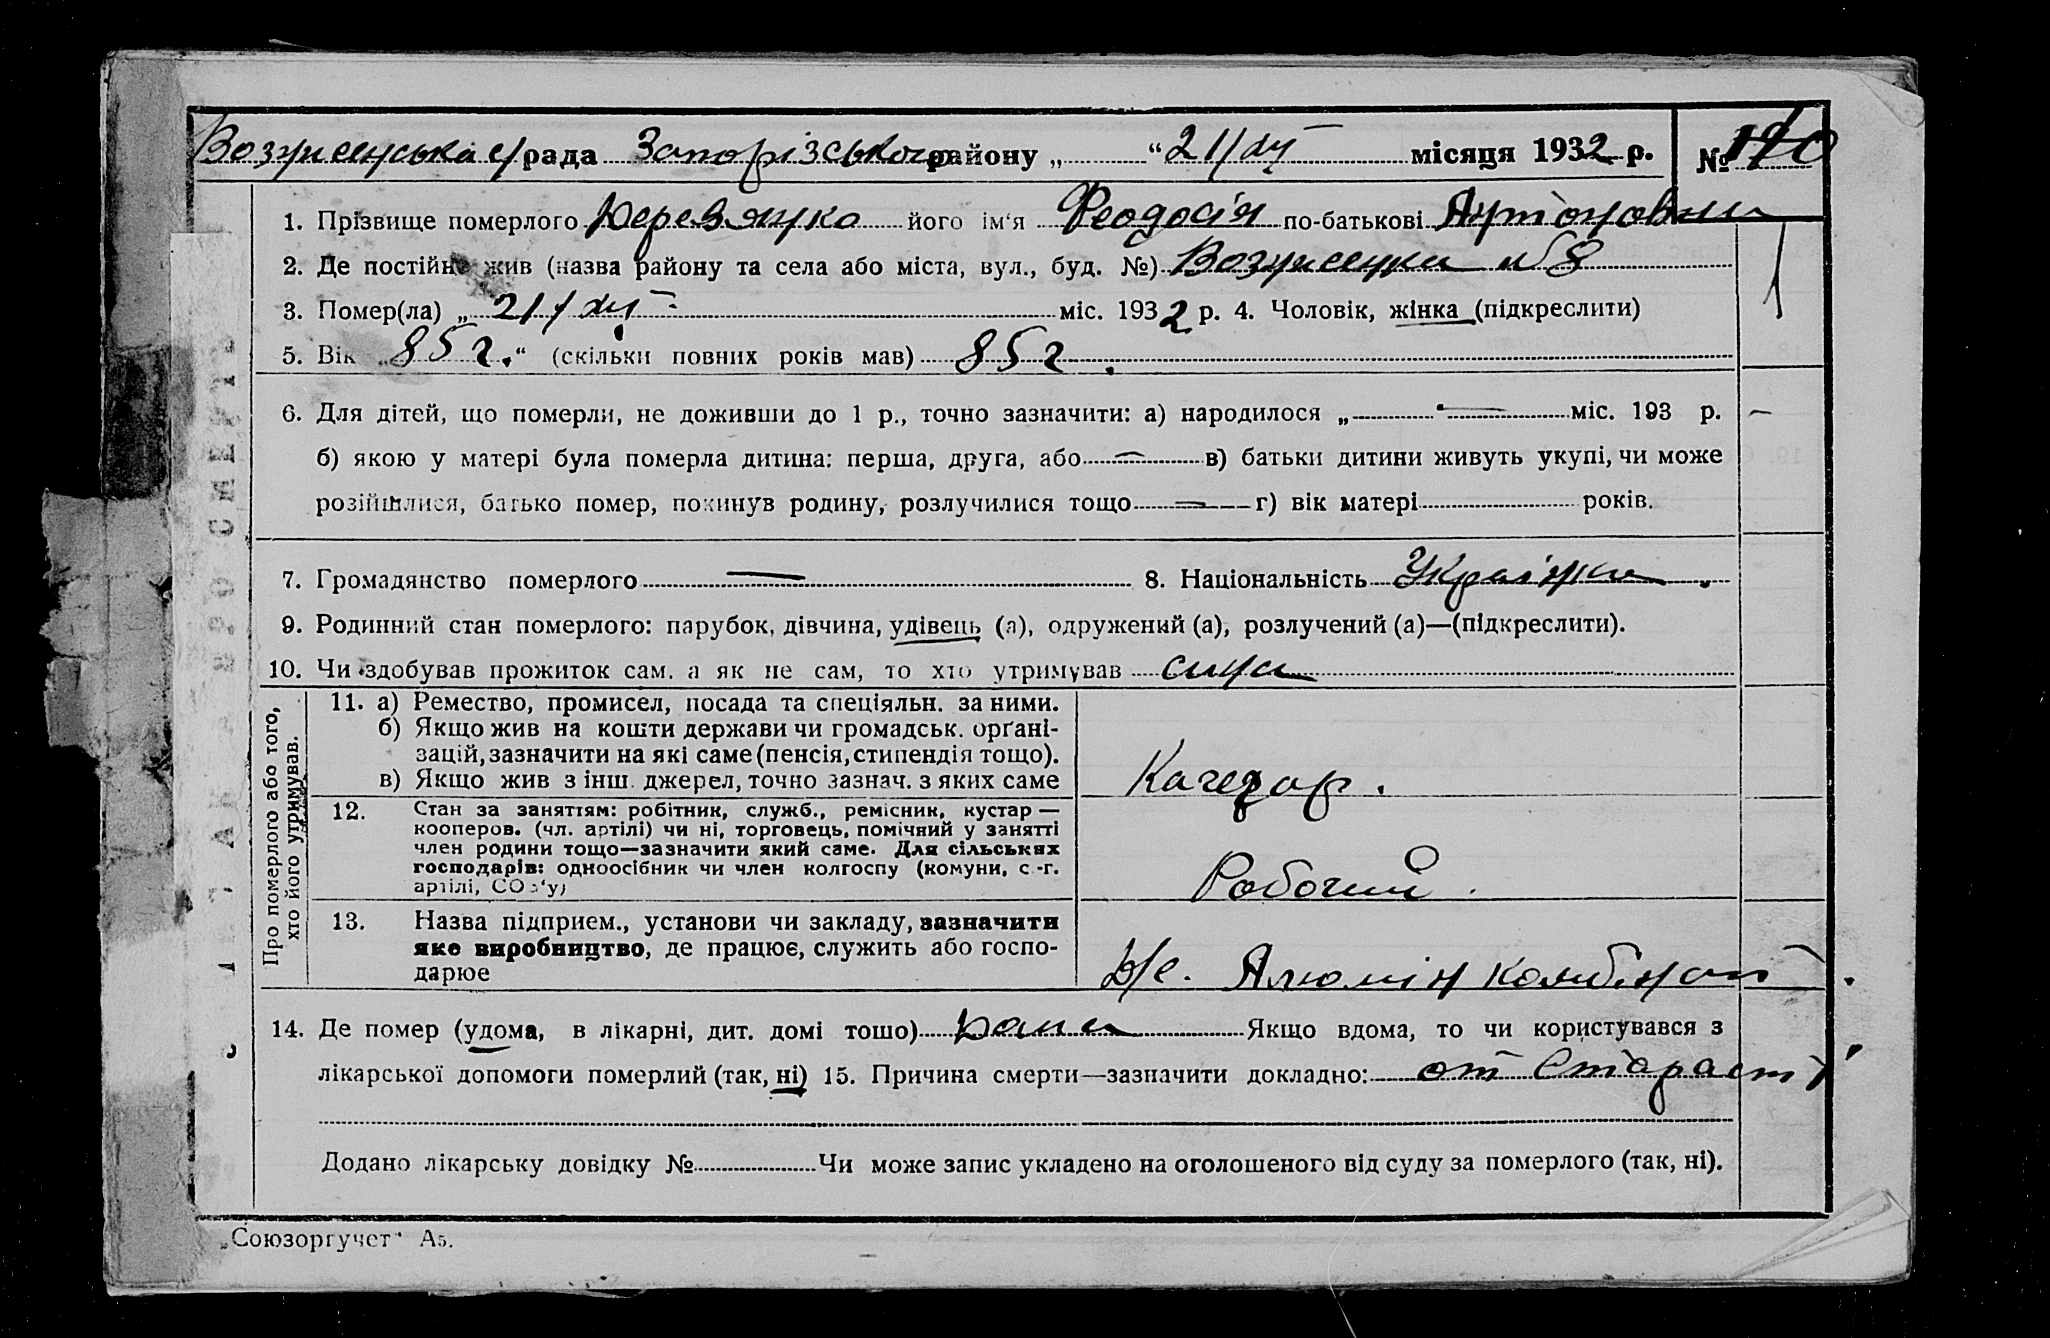 Вознесенська с/рада Запорізського району „ “ 21/XII місяця 1932 р. № 140
1. Прізвище померлого Деревянко його ім‘я Феодосія по-батькові Антоновна
2. Де постійно жив (назва району та села або міста, вул., буд. №) Вознесенка №8
3. Помер(ла) „ 21/XII міс. 1932 р. 4. Чоловік, жінка (підкреслити)
5. Вік „ 85 г. “ (скільки повних років мав) 85 г.
6. Для дітей, що померли, не доживши до 1 р., точно зазначити: а) народилося „ — міс. 193 р. —
б) якою у матері була померла дитина: перша, друга, або — в) батьки дитини живуть укупі, чи може
розійшлися, батько помер, покинув родину, розлучилися тощо — г) вік матері років.
7. Громадянство померлого — 8. Національність Українка.
9. Родинний стан померлого: парубок, дівчина, удівець (а), одружений (а), розлучений (а)—(підкреслити).
10. Чи здобував прожиток сам, а як не сам, то хто утримував сина
Про померлого або того,
хто його утримував.
11. а) Ремество, промисел, посада та спеціяльн. за ними.
б) Якщо жив на кошти держави чи громадськ. орґані-
зацій, зазначити на які саме (пенсія, стипендія тощо).
в) Якщо жив з інш. джерел, точно зазнач. з яких саме
Качегар.
12. Стан за заняттям: робітник, служб., ремісник, кустар —
кооперов. (чл. артілі) чи ні, торговець, помічний у занятті
член родини тощо—зазначити який саме. Для сільських
господарів: одноосібник чи член колгоспу (комуни, с.-г.
артілі, СОЗ‘у)
Робочий.
13. Назва підприєм., установи чи закладу, зазначити
яке виробництво, де працює, служить або госпо-
дарює
Алюмін комбінат.
14. Де помер (удома, в лікарні, дит. домі тощо) дома Якщо вдома, то чи користувався з
лікарської допомоги померлий (так, ні) 15. Причина смерти—зазначити докладно: от старасті
Додано лікарську довідку № Чи може запис укладено на оголошеного від суду за померлого (так, ні).
„Союзоргучет“ А5.